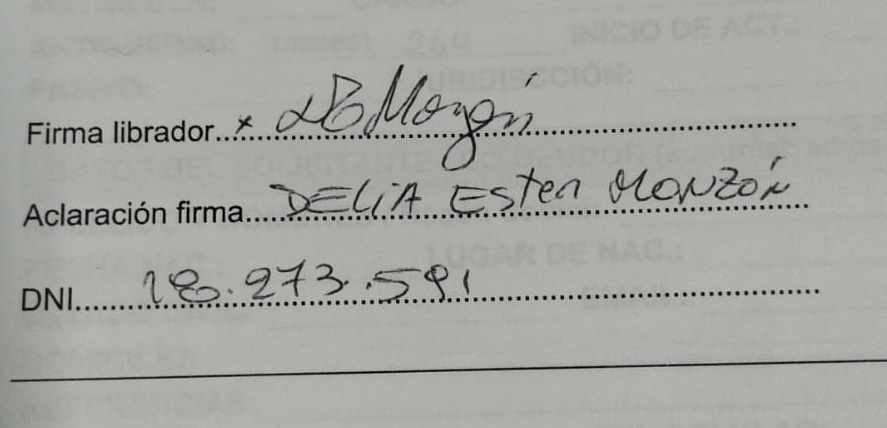 Firma librador..x DE Monzón
Aclaración firma....DELIA Ester MONZÓN
DNI........18.273.591